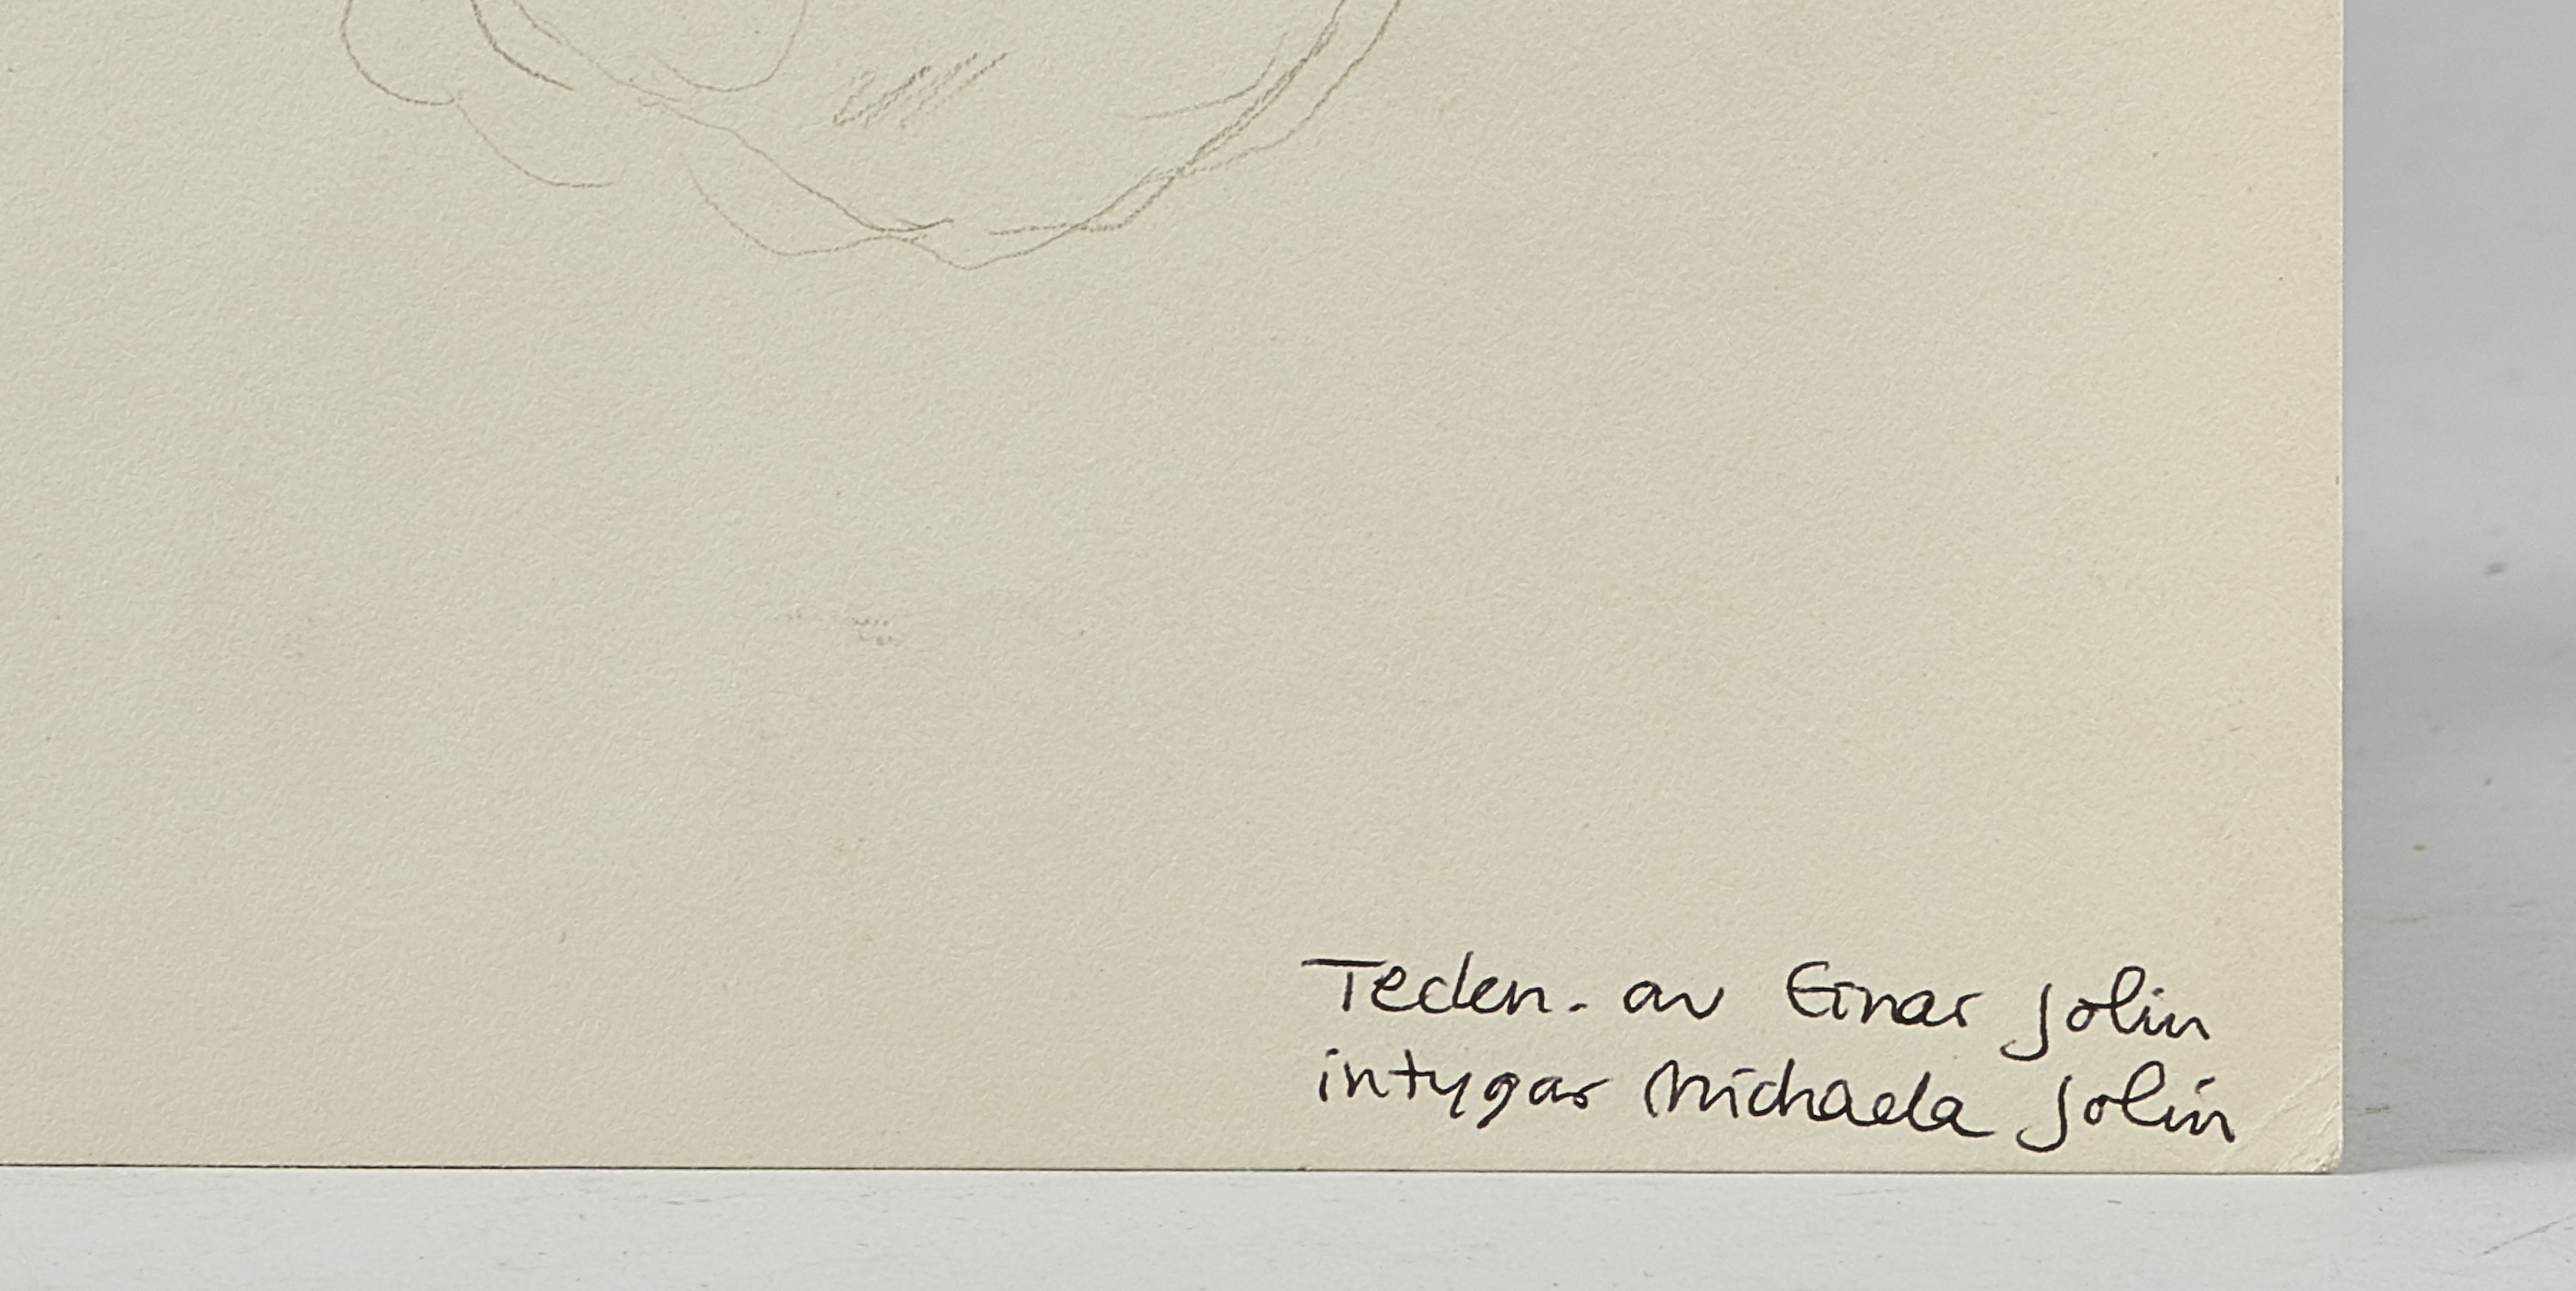 Teckn. av Einar Jolin
intygar Michaela Jolin